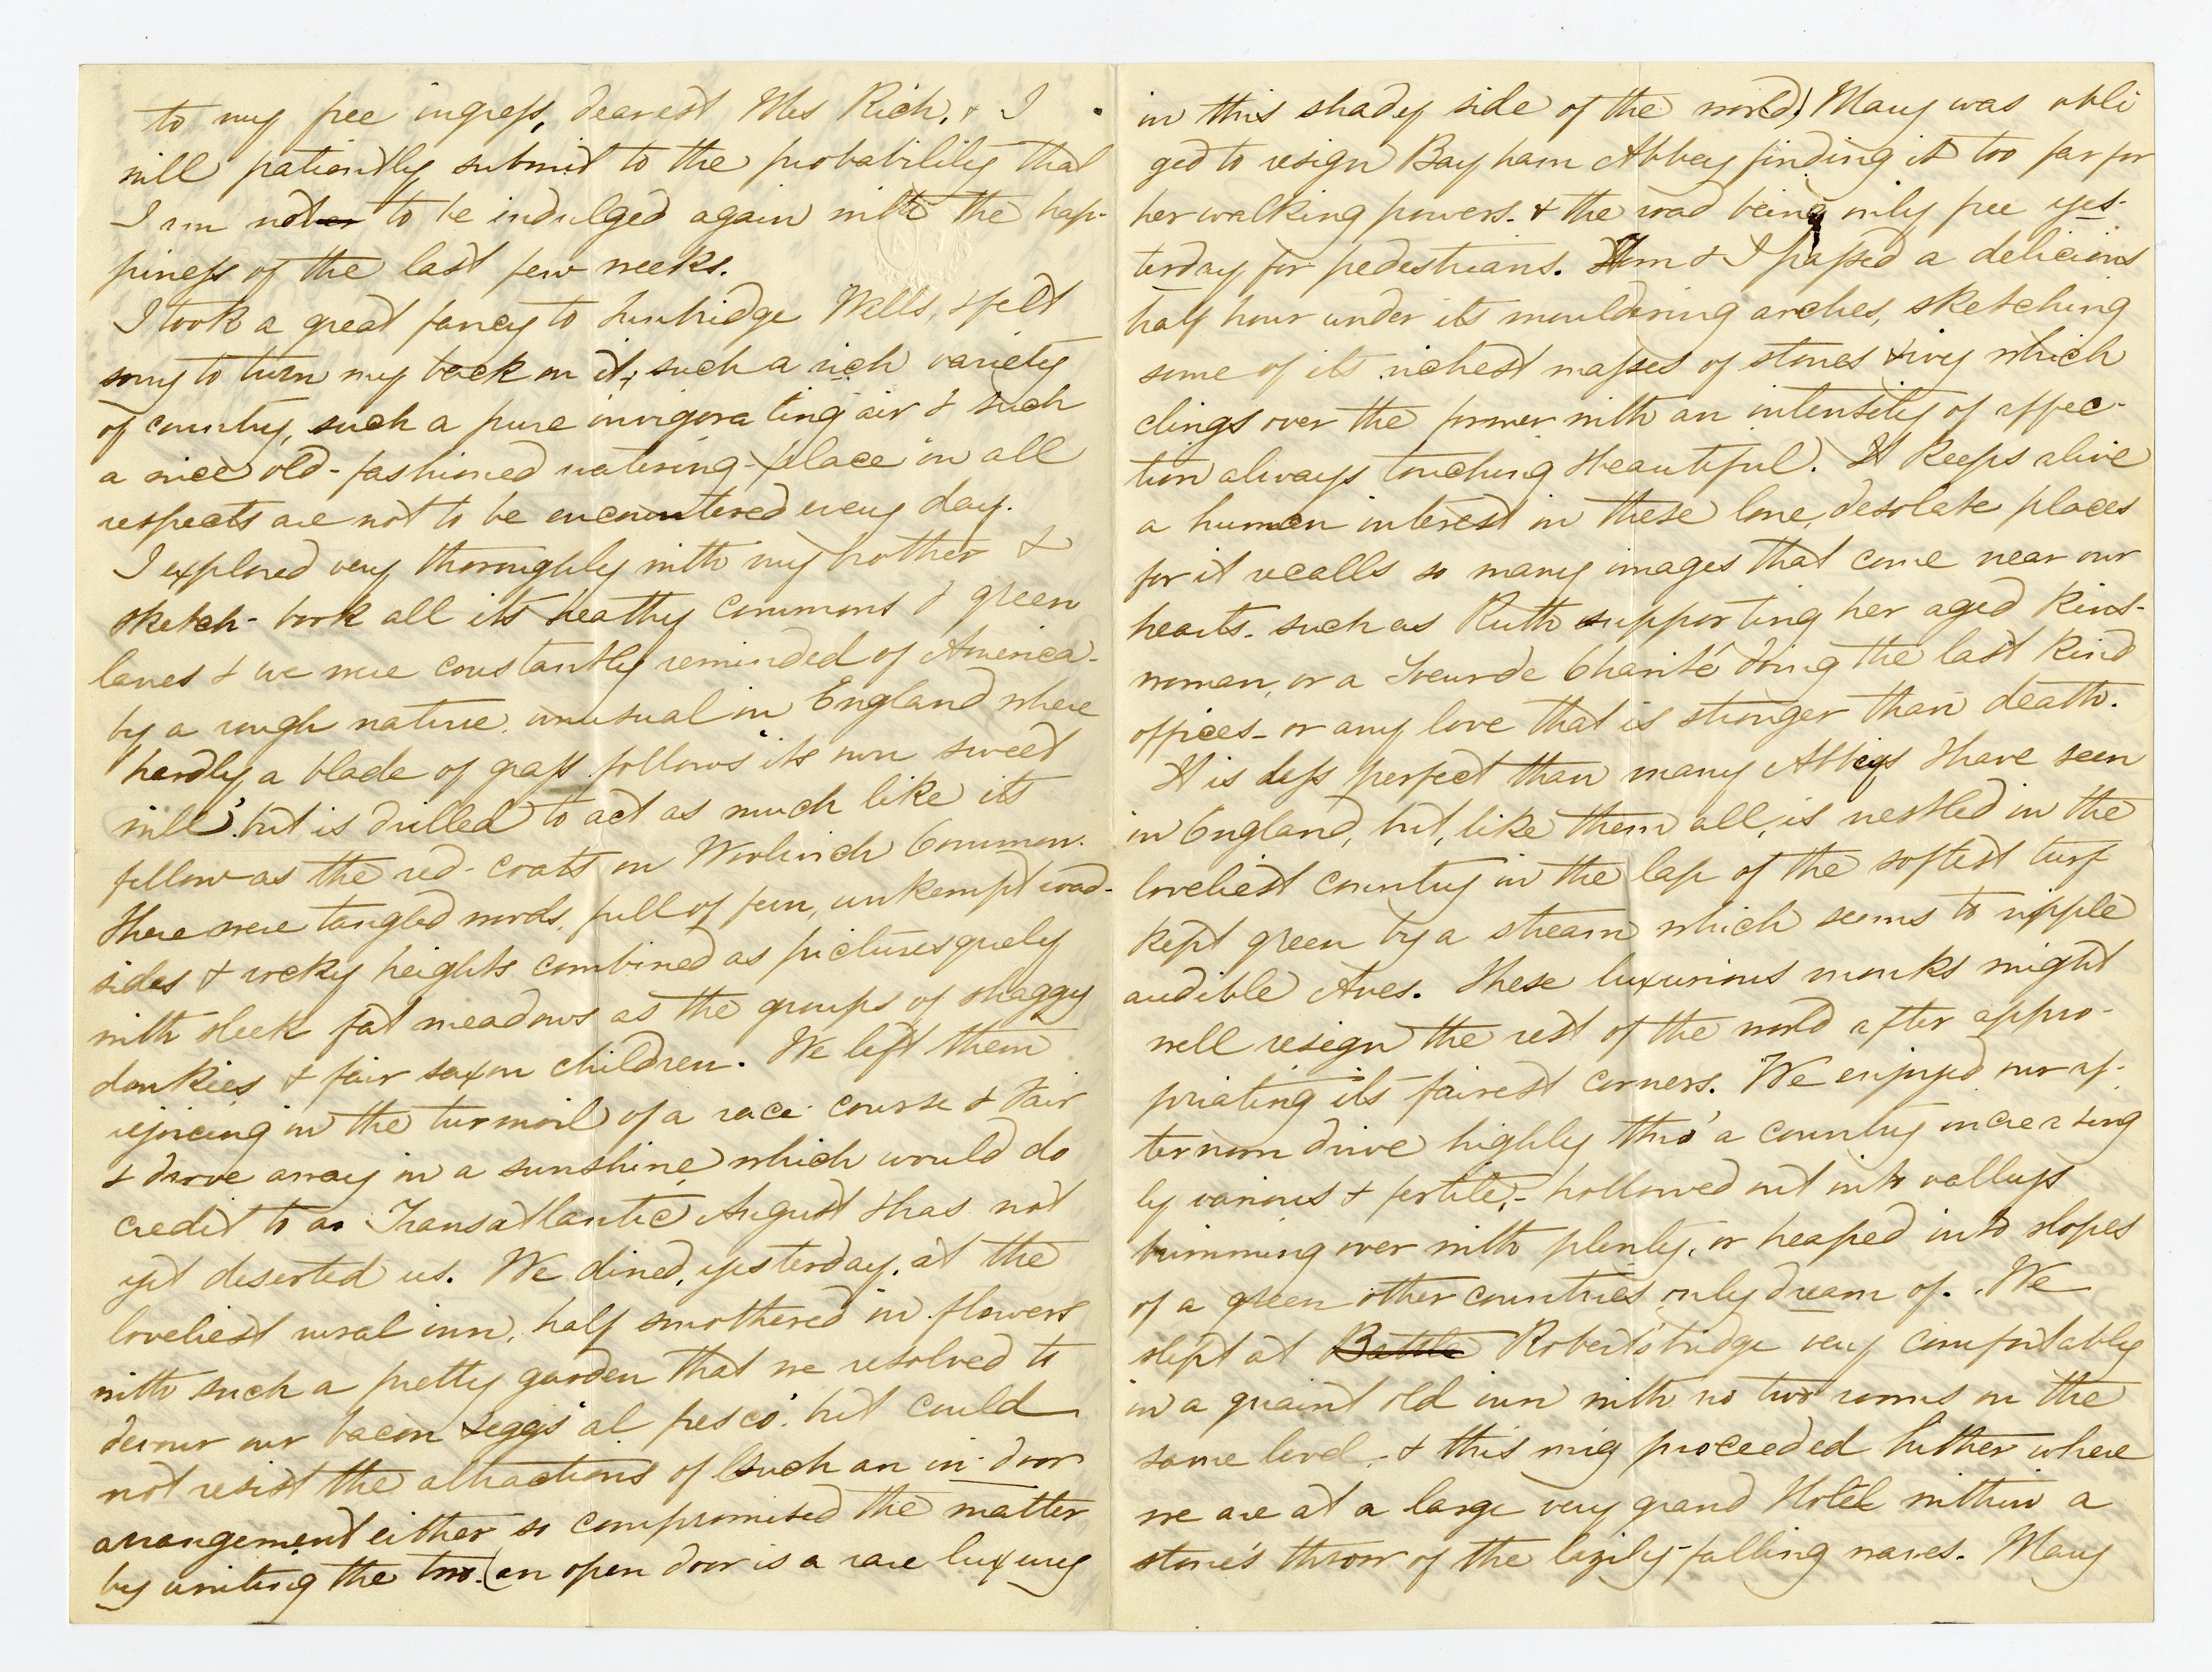 to my free ingress, dearest Mrs Rich, & I
will patiently submit to the probability that
I am not to be indulged again with the hap-
piness of the last few weeks.
I took a great fancy to Tunbridge Wells, & felt
sorry to turn my back on it; such a rich variety
of country, such a pure invigorating air & such
a nice old-fashioned watering-place in all
respects are not to be encountered every day.
I explored very thoroughly with my brother &
sketch-book all its heathy commons & green
lanes & we were constantly reminded of America-
by a rough nature, unusual in England where
hardly a blade of grass follows "its own sweet
will", but is drilled to act as much like its
fellow as the red-coats on Woolwich Common.
There were tangled woods, full of fern, unkempt road-
sides & rocky heights combined as picturesquely
with sleek fat meadows as the groups of shaggy
donkies & fair saxon children. We left them
rejoicing in the turmoil of a race-course & Fair
& drove away in a sunshine which would do
credit to a Transatlantic August & has not
yet deserted us. We dined, yesterday, at the
loveliest rural inn, half smothered in flowers
with such a pretty garden that we resolved to
devour our bacon & eggs "al fresco" but could
not resist the attractions of such an in-door
arrangement either so compromised the matter
by uniting the two. (an open door is a rare luxury
in this shady side of the world) Mary was obli
ged to resign Bayham Abbey finding it too far for
her walking powers- & the road being only free yes-
terday for pedestrians. Tom & I passed a delicious
half hour under its mouldering arches, sketching
some of its richest masses of stones & ivy which
clings over the former with an intensity of affec-
tion always touching & beautiful. It keeps alive
a human interest in these lone, desolate places
for it recalls so many images that come near our
hearts- such as Ruth supporting her aged kins-
woman, or a Soeur de Charité doing the last kind
offices- or any love that is stronger than death.
It is less perfect than many Abbeys I have seen
in England, but, like them all, is nestled in the
loveliest country in the lap of the softest turf
kept green by a stream which seems to ripple
audible Aves. These luxurious monks might
well resign the rest of the world after appro-
priating its fairest corners. We enjoyed our af-
ternoon drive highly thro' a country increasing
ly various & fertile,- hollowed out into valleys
brimming over with plenty, or heaped into slopes
of a green other countries only dream of. We
slept at Battle Robertsbridge very comfortably
in a quaint old inn with no two rooms on the
same level,- & this mng proceeded hither where
we are at a large very grand Hotel within a
stone's throw of the lazily-falling waves. Mary